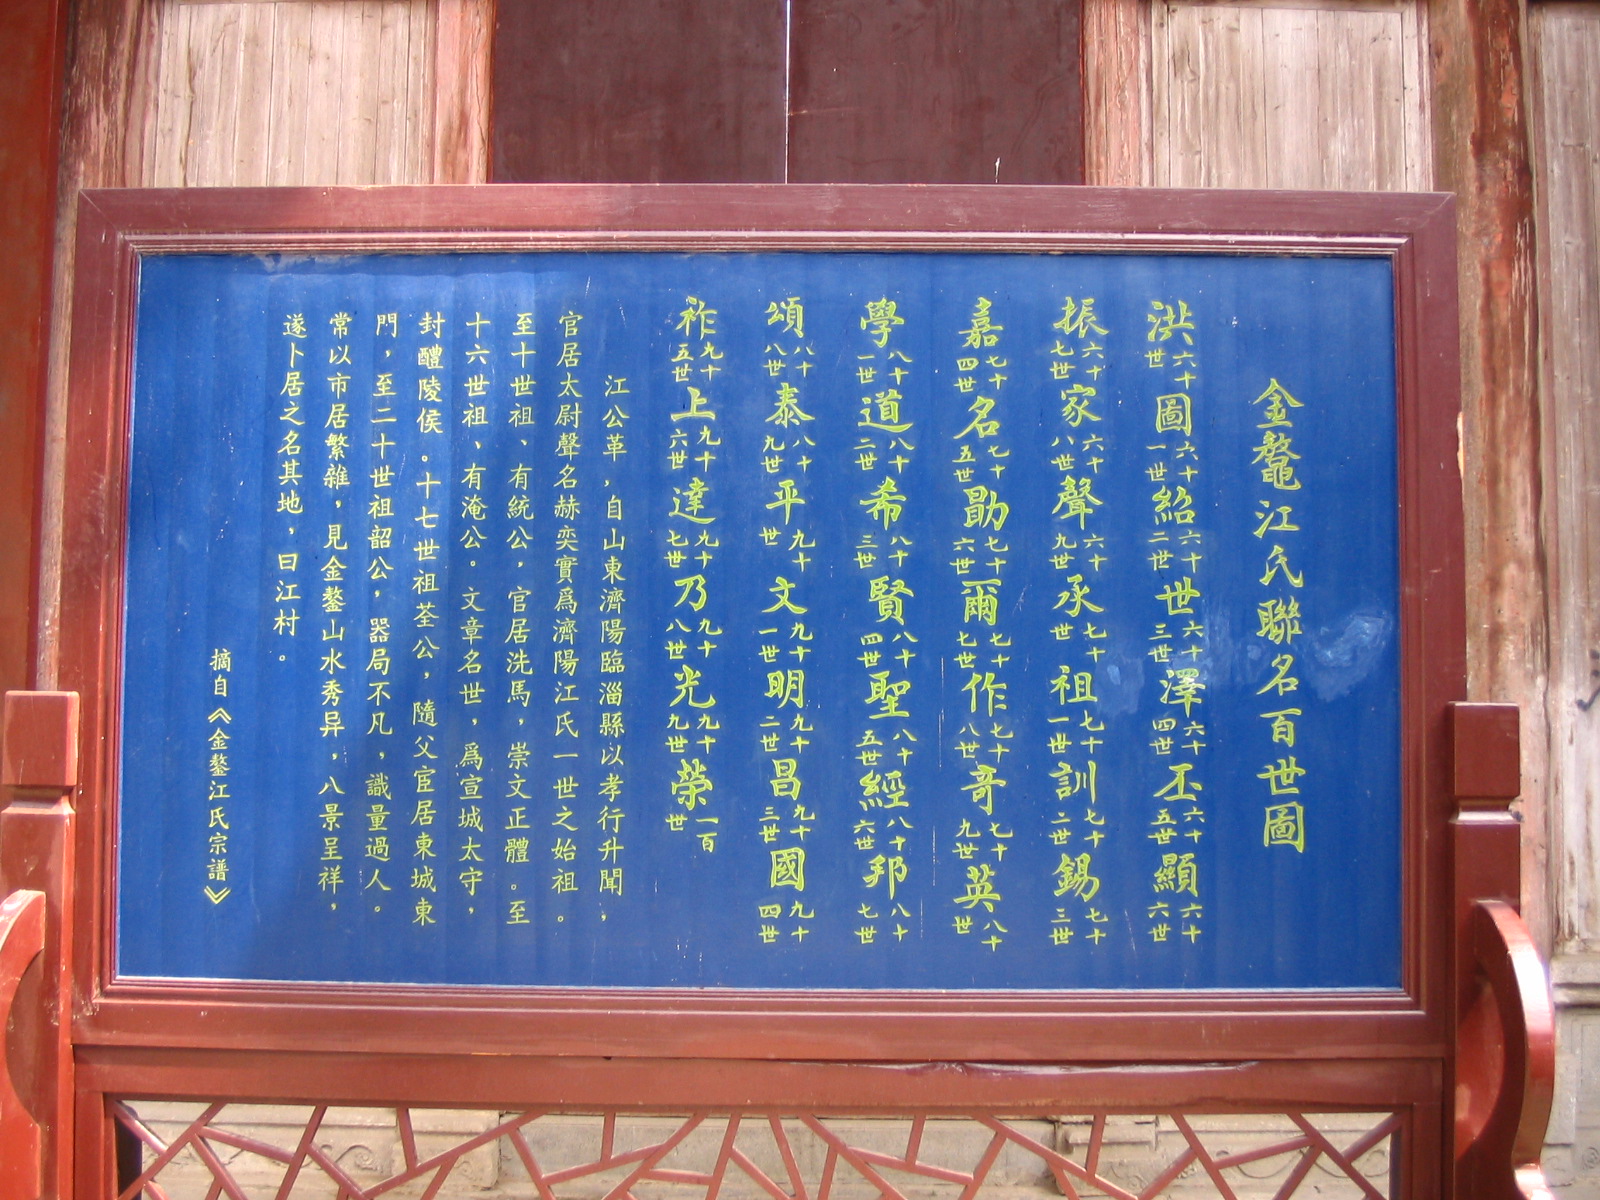 金鰲江氏聯名百世圖
洪六十世圖六十一世紹六十二世世六十三世澤六十四世丕六十五世顯六十六世
振六十七世家六十八世聲六十九世承七十世祖七十一世訓七十二世錫七十三世
嘉七十四世名七十五世勖七十六世爾七十七世作七十八世奇七十九世英八十世
學八十一世道八十二世希八十三世賢八十四世聖八十五世經八十六世邦八十七世
頌八十八世泰八十九世平九十世文九十一世明九十二世昌九十三世國九十四世
祚九十五世上九十六世達九十七世乃九十八世光九十九世榮一百世
江公革,自山東濟陽臨淄縣以孝行升聞,
官居太尉聲名赫奕實爲濟陽江氏一世之始祖。
至十世祖、有統公,官居洗馬,崇文正體。至
十六世祖、有淹公。文章名世,爲宣城太守,
封醴陵侯。十七世祖荃公,隨父宦居東城東
門,至二十世祖韶公,器局不凡,識量過人。
常以市居繁雜,見金鏊山水秀异,八景呈祥,
遂卜居之名其地,曰江村。
摘自《金鏊江氏宗譜》